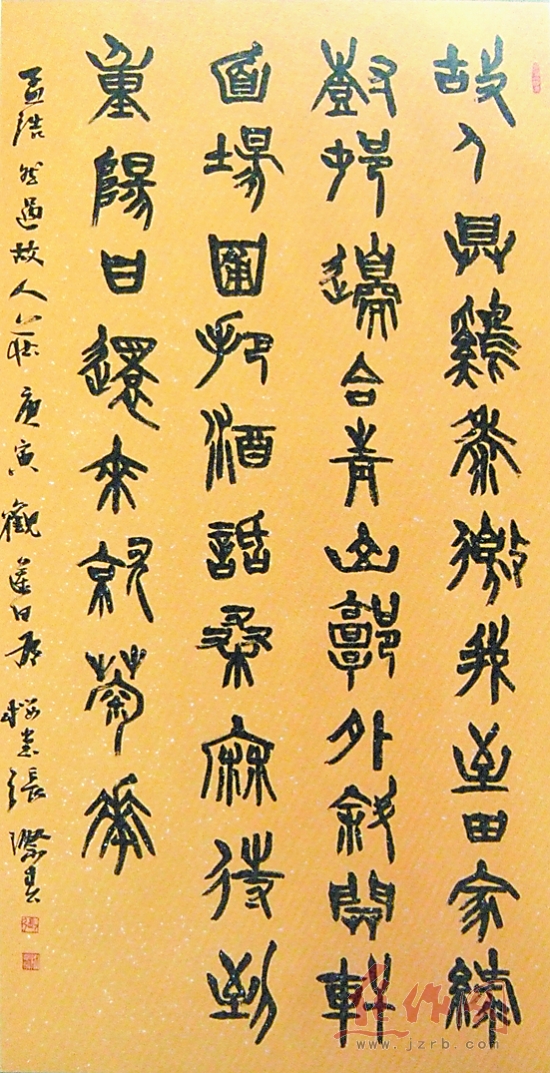 故人具鷄黍徼我至田家綠
樹邨邊合青山郭外斜開軒
面場圃把酒話桑麻待到
重陽日還來就菊華
孟浩然過故人莊庚寅觀蓮日張
焦作网
www.jzrb.com